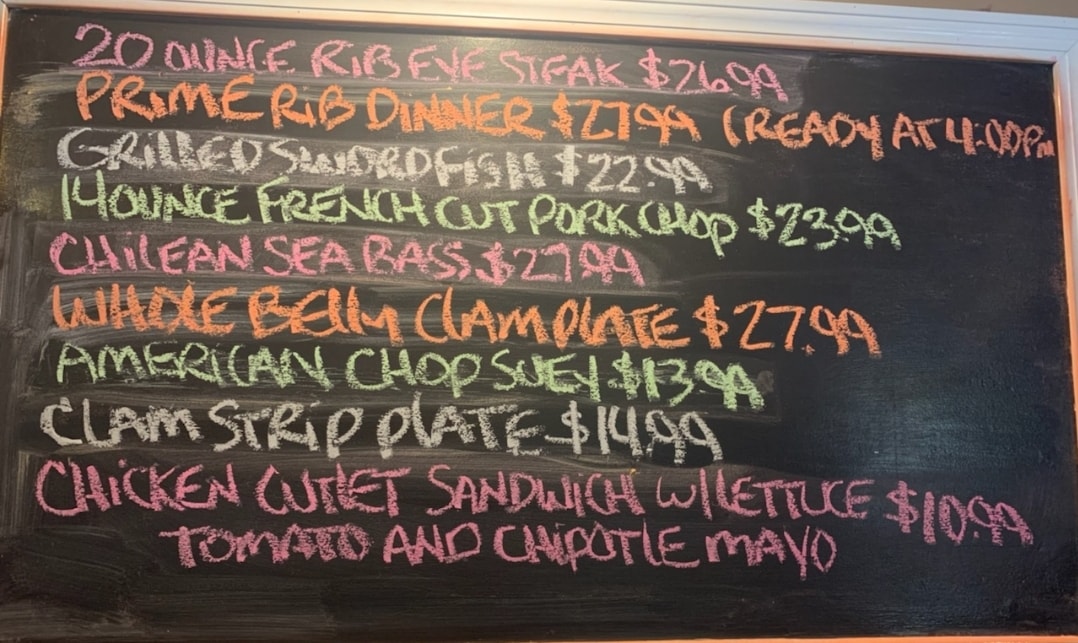 20 OUNCE RIB EYE STEAK $26.99
PRIME RIB DINNER $27.99 (READY AT 4:00PM
GRILLED SWORDFISH $22.99
14 OUNCE FRENCH CUT PORK CHOP $23.99
CHILEAN SEA BASS $27.99
WHOLE BELLY CLAM PLATE $27.99
AMERICAN CHOP SUEY $13.99
CLAM STRIP PLATE $14.99
CHICKEN CUTLET SANDWICH W/LETTUCE $10.99
TOMATO AND CHIPOTLE MAYO